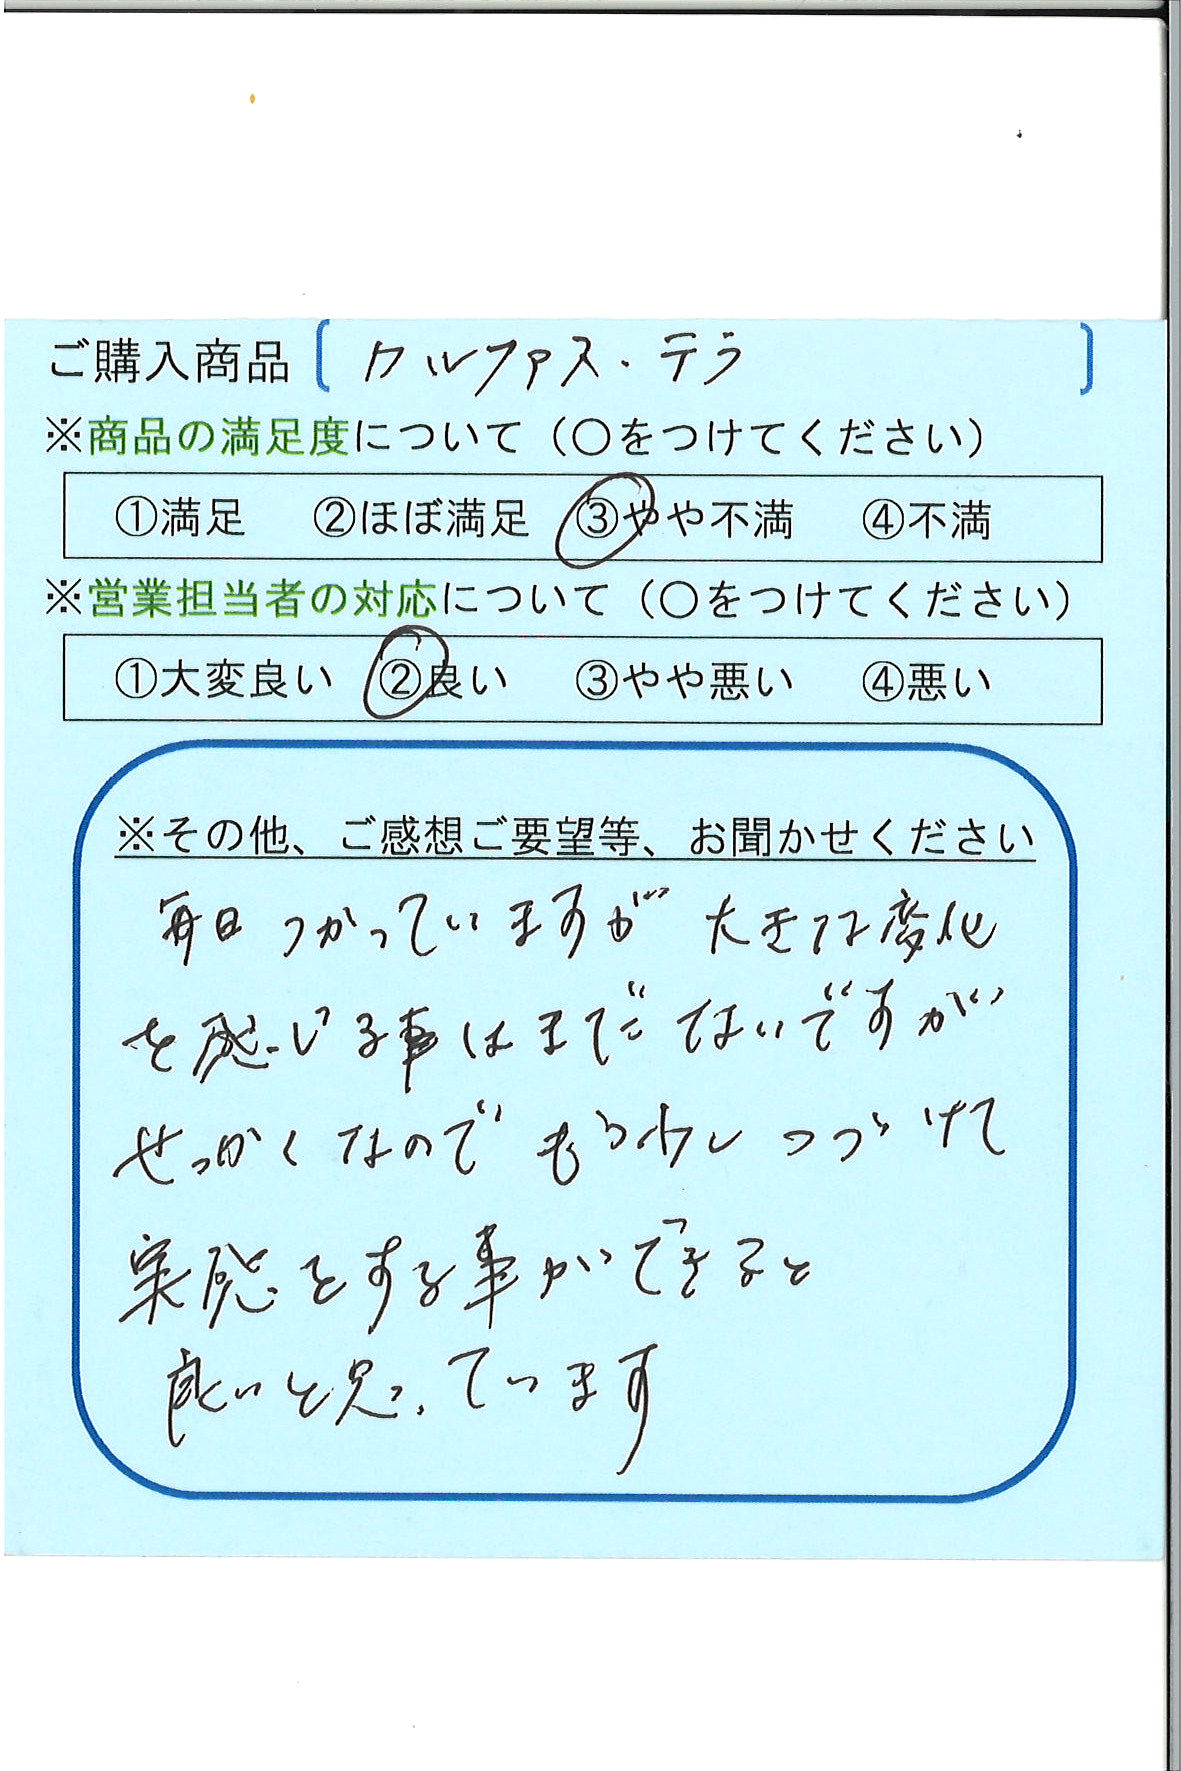 ご購入商品 [ カルファス・テラ ]
※商品の満足度について（〇をつけてください）
①満足 ②ほぼ満足 ③やや不満 ④不満
※営業担当者の対応について（〇をつけてください）
①大変良い ②良い ③やや悪い ④悪い
※その他、ご感想ご要望等、お聞かせください
毎日つかっていますが 大きな変化
を感じる事はまだないですが
せっかくなのでもう少しつづけて
実感をする事ができると
良いと思っています